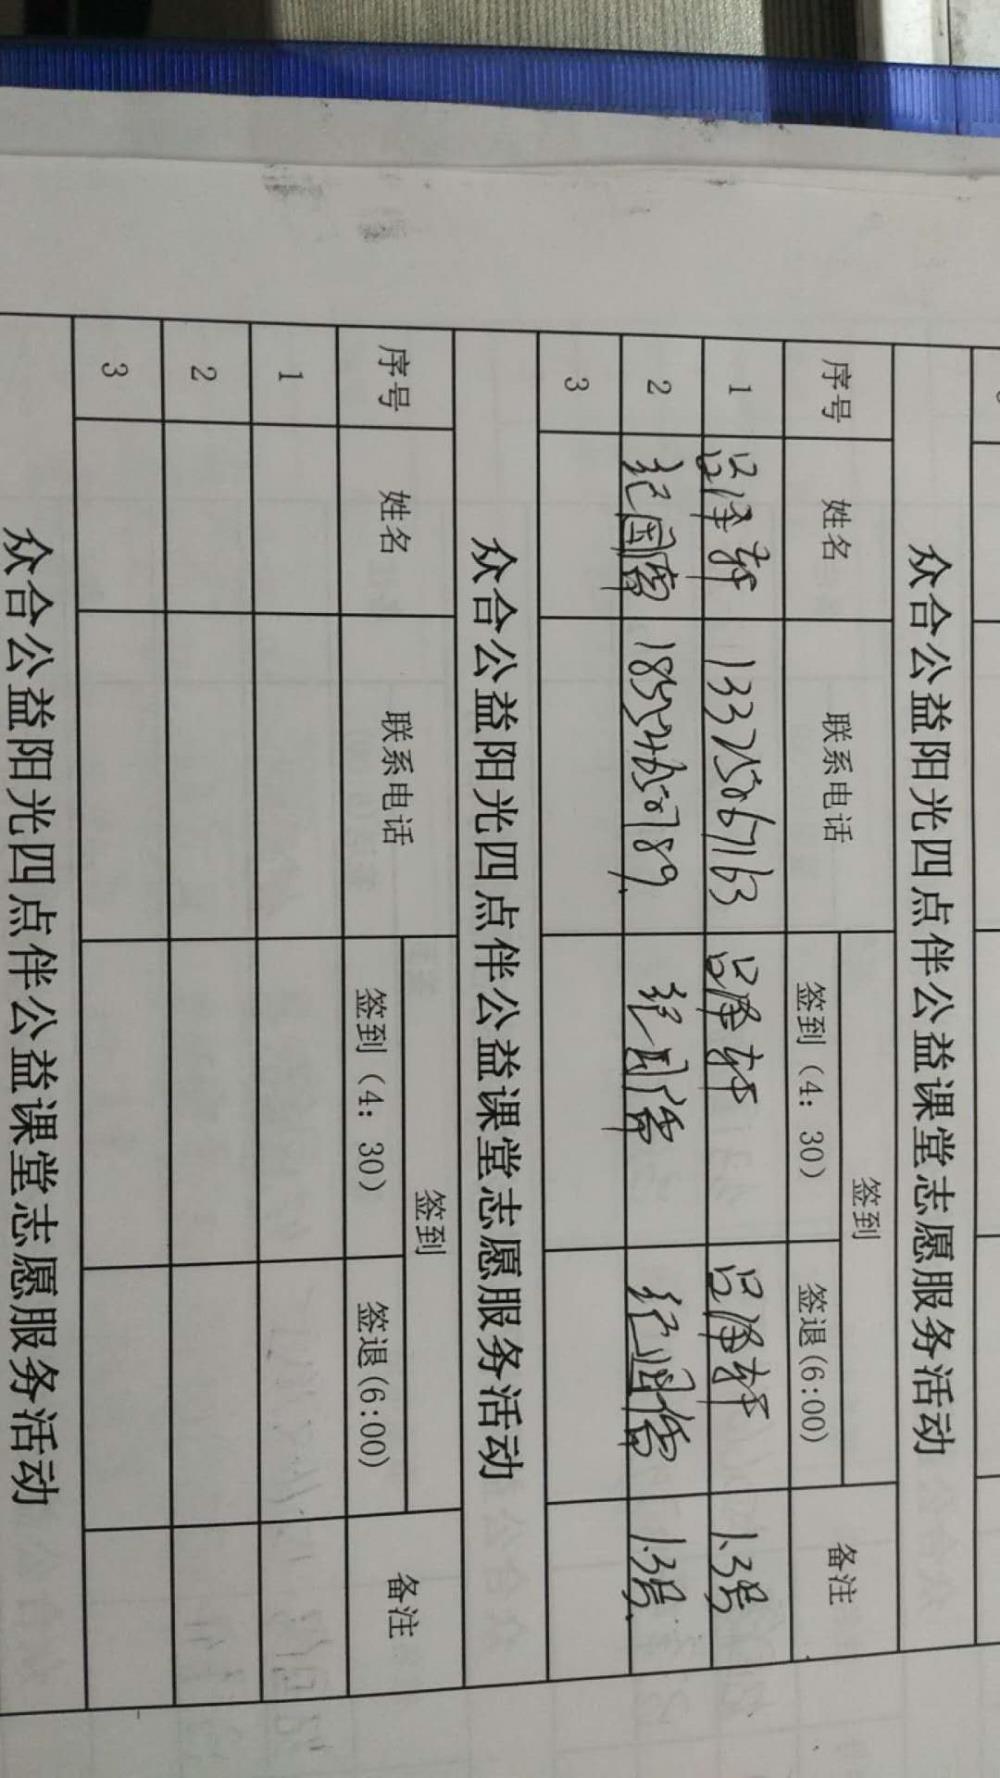 众合公益阳光四点伴公益课堂志愿服务活动
序号 姓名 联系电话 签到 备注
签到（4：30） 签退(6:00)
1 吕泽轩 13325067163 吕泽轩 吕泽轩 1.3号
2 纪国 18552465789 1.3号.
3
众合公益阳光四点伴公益课堂志愿服务活动
序号 姓名 联系电话 签到 备注
签到（4：30） 签退(6:00)
1
2
3
众合公益阳光四点伴公益课堂志愿服务活动